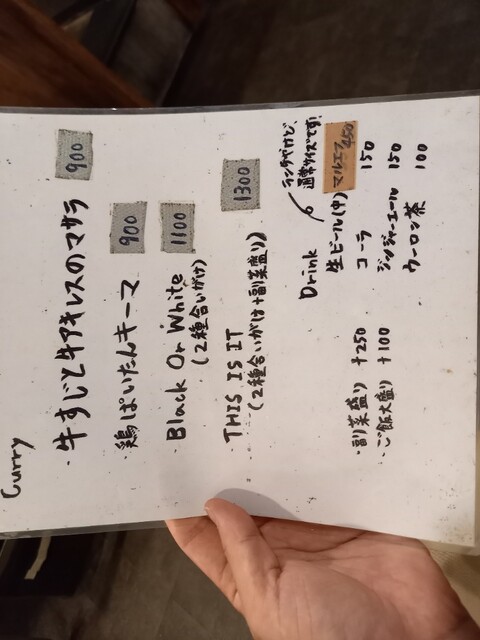 Curry
・牛すじと牛アキレスのマサラ 900
・鶏ぱいたんキーマ 900
・Black Or White 1100
(2種合いがけ)
・THIS IS IT 1300
(2種合いがけ+副菜盛り)
・副菜盛り +250
・ご飯大盛り +100
Drink
ランチやけど、
通常サイズです!
生ビール(中) マルエフ 450
コーラ 150
ジンジャーエール 150
ウーロン茶 100